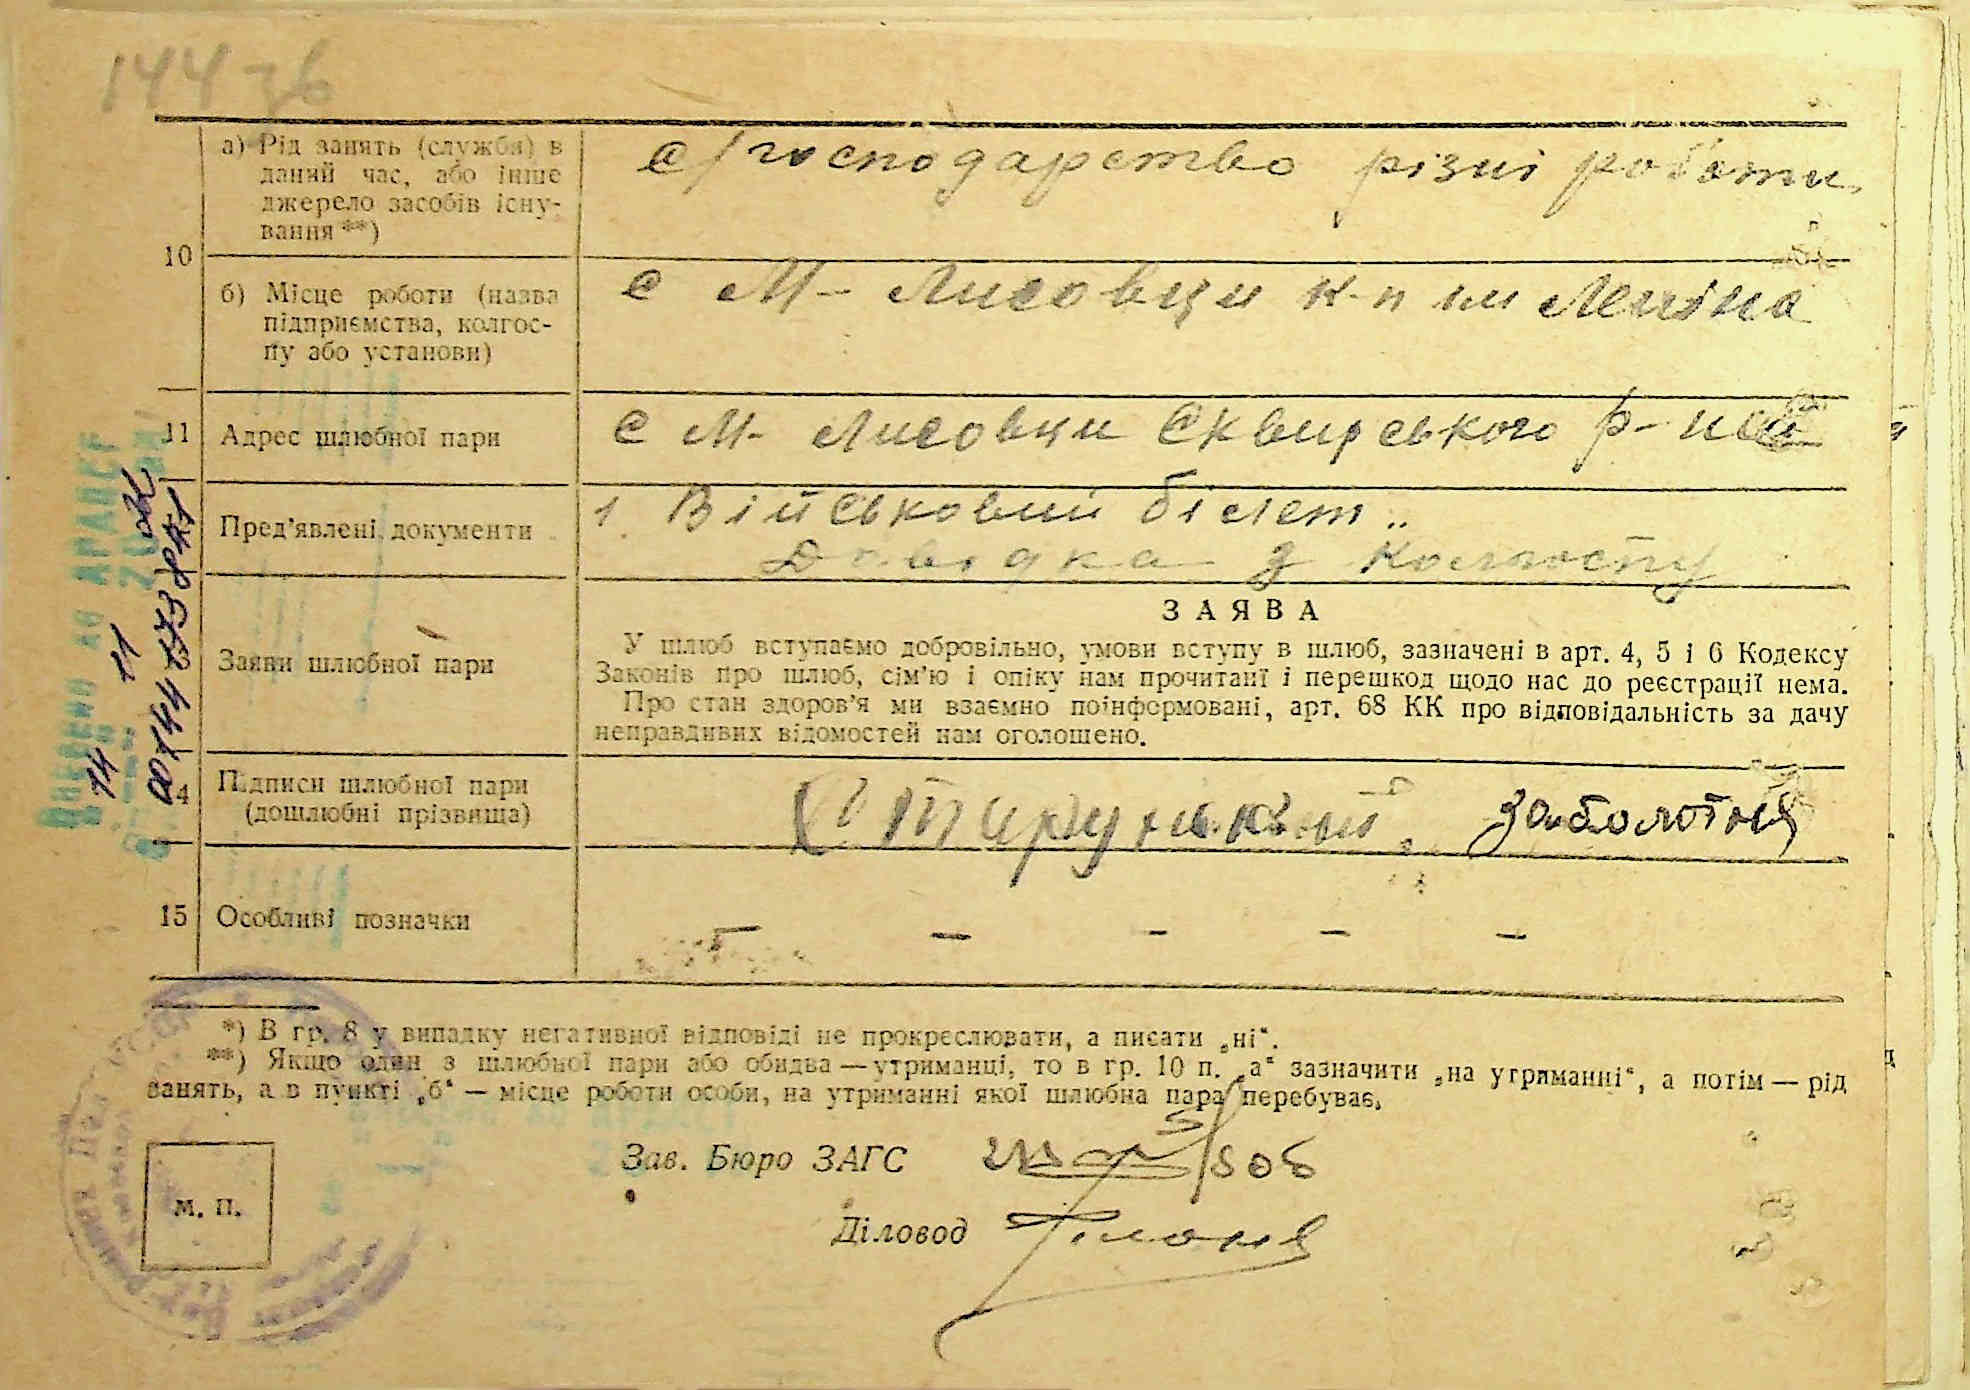 144 зв
а) Рід занять (служби) в
даний час, або інше
джерело засобів існу-
вання **)
с/господарство різні роботи
10
б) Місце роботи (назва
підприємства, колгос-
пу або установи)
с М- Лисовци к-п им Леніна
11
Адрес шлюбної пари
с М- Лисовци Сквирського р-на
Пред'явлені документи
1 Військовий білет
Довідка з колгоспу
Заяви шлюбної пари
ЗАЯВА
У шлюб вступаємо добровільно, умови вступу в шлюб, зазначені в арт. 4, 5 і 6 Кодексу
Законів про шлюб, сім'ю і опіку нам прочитані і перешкод щодо нас до реєстрації нема.
Про стан здоров'я ми взаємно поінформовані, арт. 68 КК про відповідальність за дачу
неправдивих відомостей нам оголошено.
4
Підписи шлюбної пари
(дошлюбні прізвища)
Заболотня
15
Особливі позначки
– – – – –
*) В гр. 8 у випадку негативної відповіді не прокреслювати, а писати „ні“.
**) Якщо один з шлюбної пари або обидва — утриманці, то в гр. 10 п. „а“ зазначити „на утриманні“, а потім — рід
занять, а в пункті „б“ — місце роботи особи, на утриманні якої шлюбна пара перебуває.
Зав. Бюро ЗАГС
М. П.
Діловод
14 11